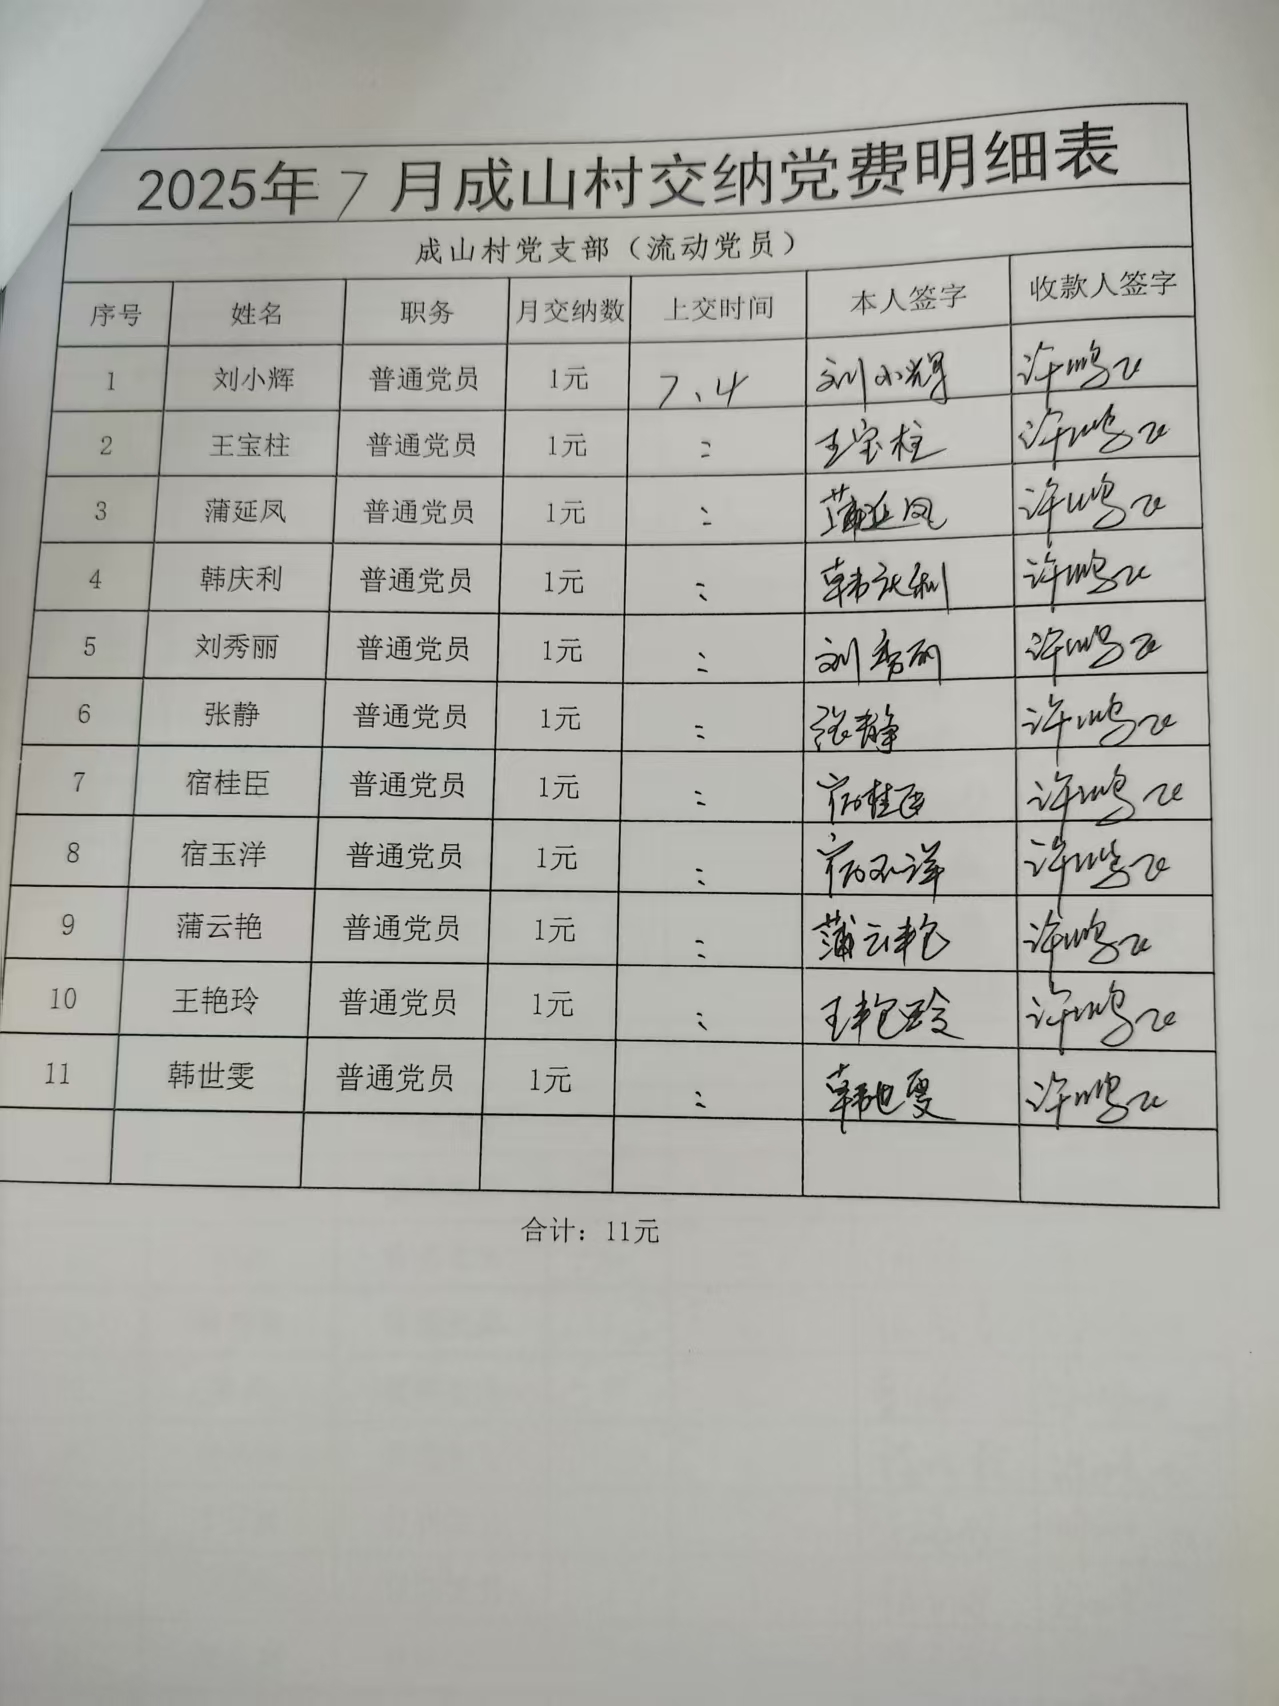 2025年7月成山村交纳党费明细表
成山村党支部（流动党员）
序号 姓名 职务 月交纳数 上交时间 本人签字 收款人签字
1 刘小辉 普通党员 1元 7、4 刘小辉 许鹏飞
2 王宝柱 普通党员 1元 〃 王宝柱 许鹏飞
3 蒲延凤 普通党员 1元 〃 蒲延凤 许鹏飞
4 韩庆利 普通党员 1元 〃 韩庆利 许鹏飞
5 刘秀丽 普通党员 1元 〃 刘秀丽 许鹏飞
6 张静 普通党员 1元 〃 张静 许鹏飞
7 宿桂臣 普通党员 1元 〃 宿桂臣 许鹏飞
8 宿玉洋 普通党员 1元 〃 宿玉洋 许鹏飞
9 蒲云艳 普通党员 1元 〃 蒲云艳 许鹏飞
10 王艳玲 普通党员 1元 〃 王艳玲 许鹏飞
11 韩世雯 普通党员 1元 〃 韩世雯 许鹏飞
合计：11元